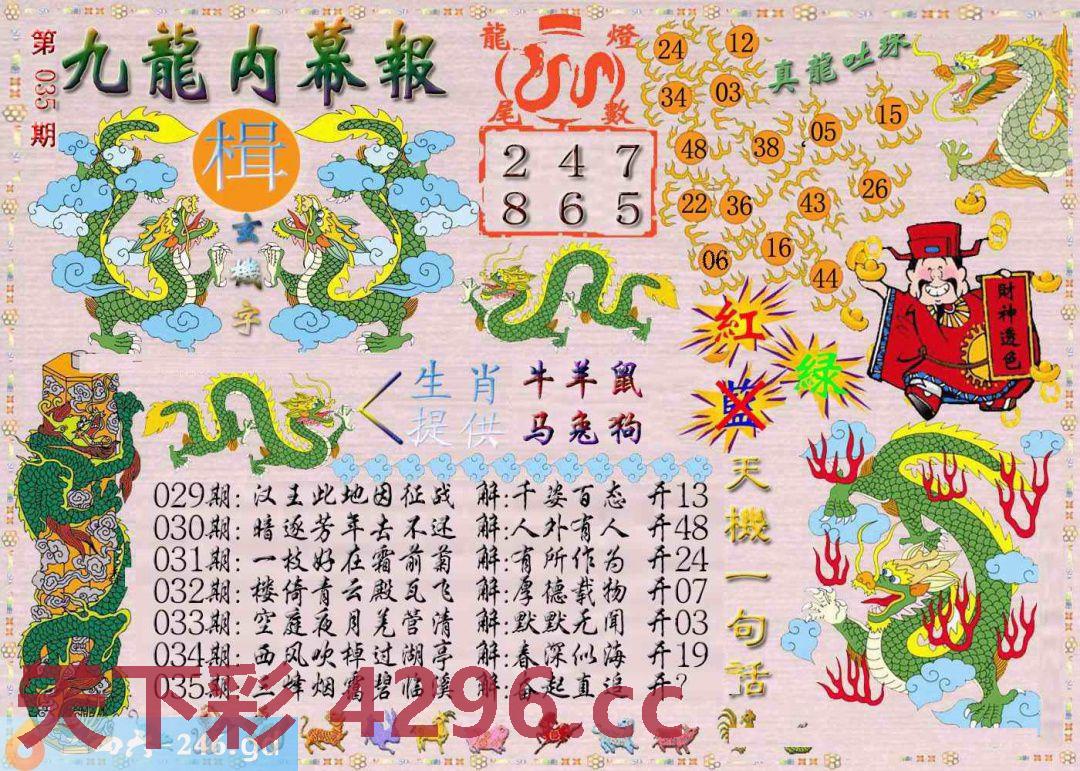 第035期
九龍内幕報
楫
玄機字
龍燈
尾數
2 4 7
8 6 5
24 12
34 03
48 38 05 15
22 36 43 26
06 16 44
真龍吐珠
財神透色
紅
蓝
绿
生肖 牛羊鼠
提供 马兔狗
天機一句話
029期: 汉王此地因征战 解:千姿百态 开13
030期: 暗逐芳年去不还 解:人外有人 开48
031期: 一枝好在霜前菊 解:有所作为 开24
032期: 楼倚青云殿瓦飞 解:厚德载物 开07
033期: 空庭夜月羌管清 解:默默无闻 开03
034期: 西风吹掉过湖亭 解:春深似海 开19
035期: 三峰烟霭碧临溪 解:奋起直追 开?
天下彩 4296.cc
246.gd